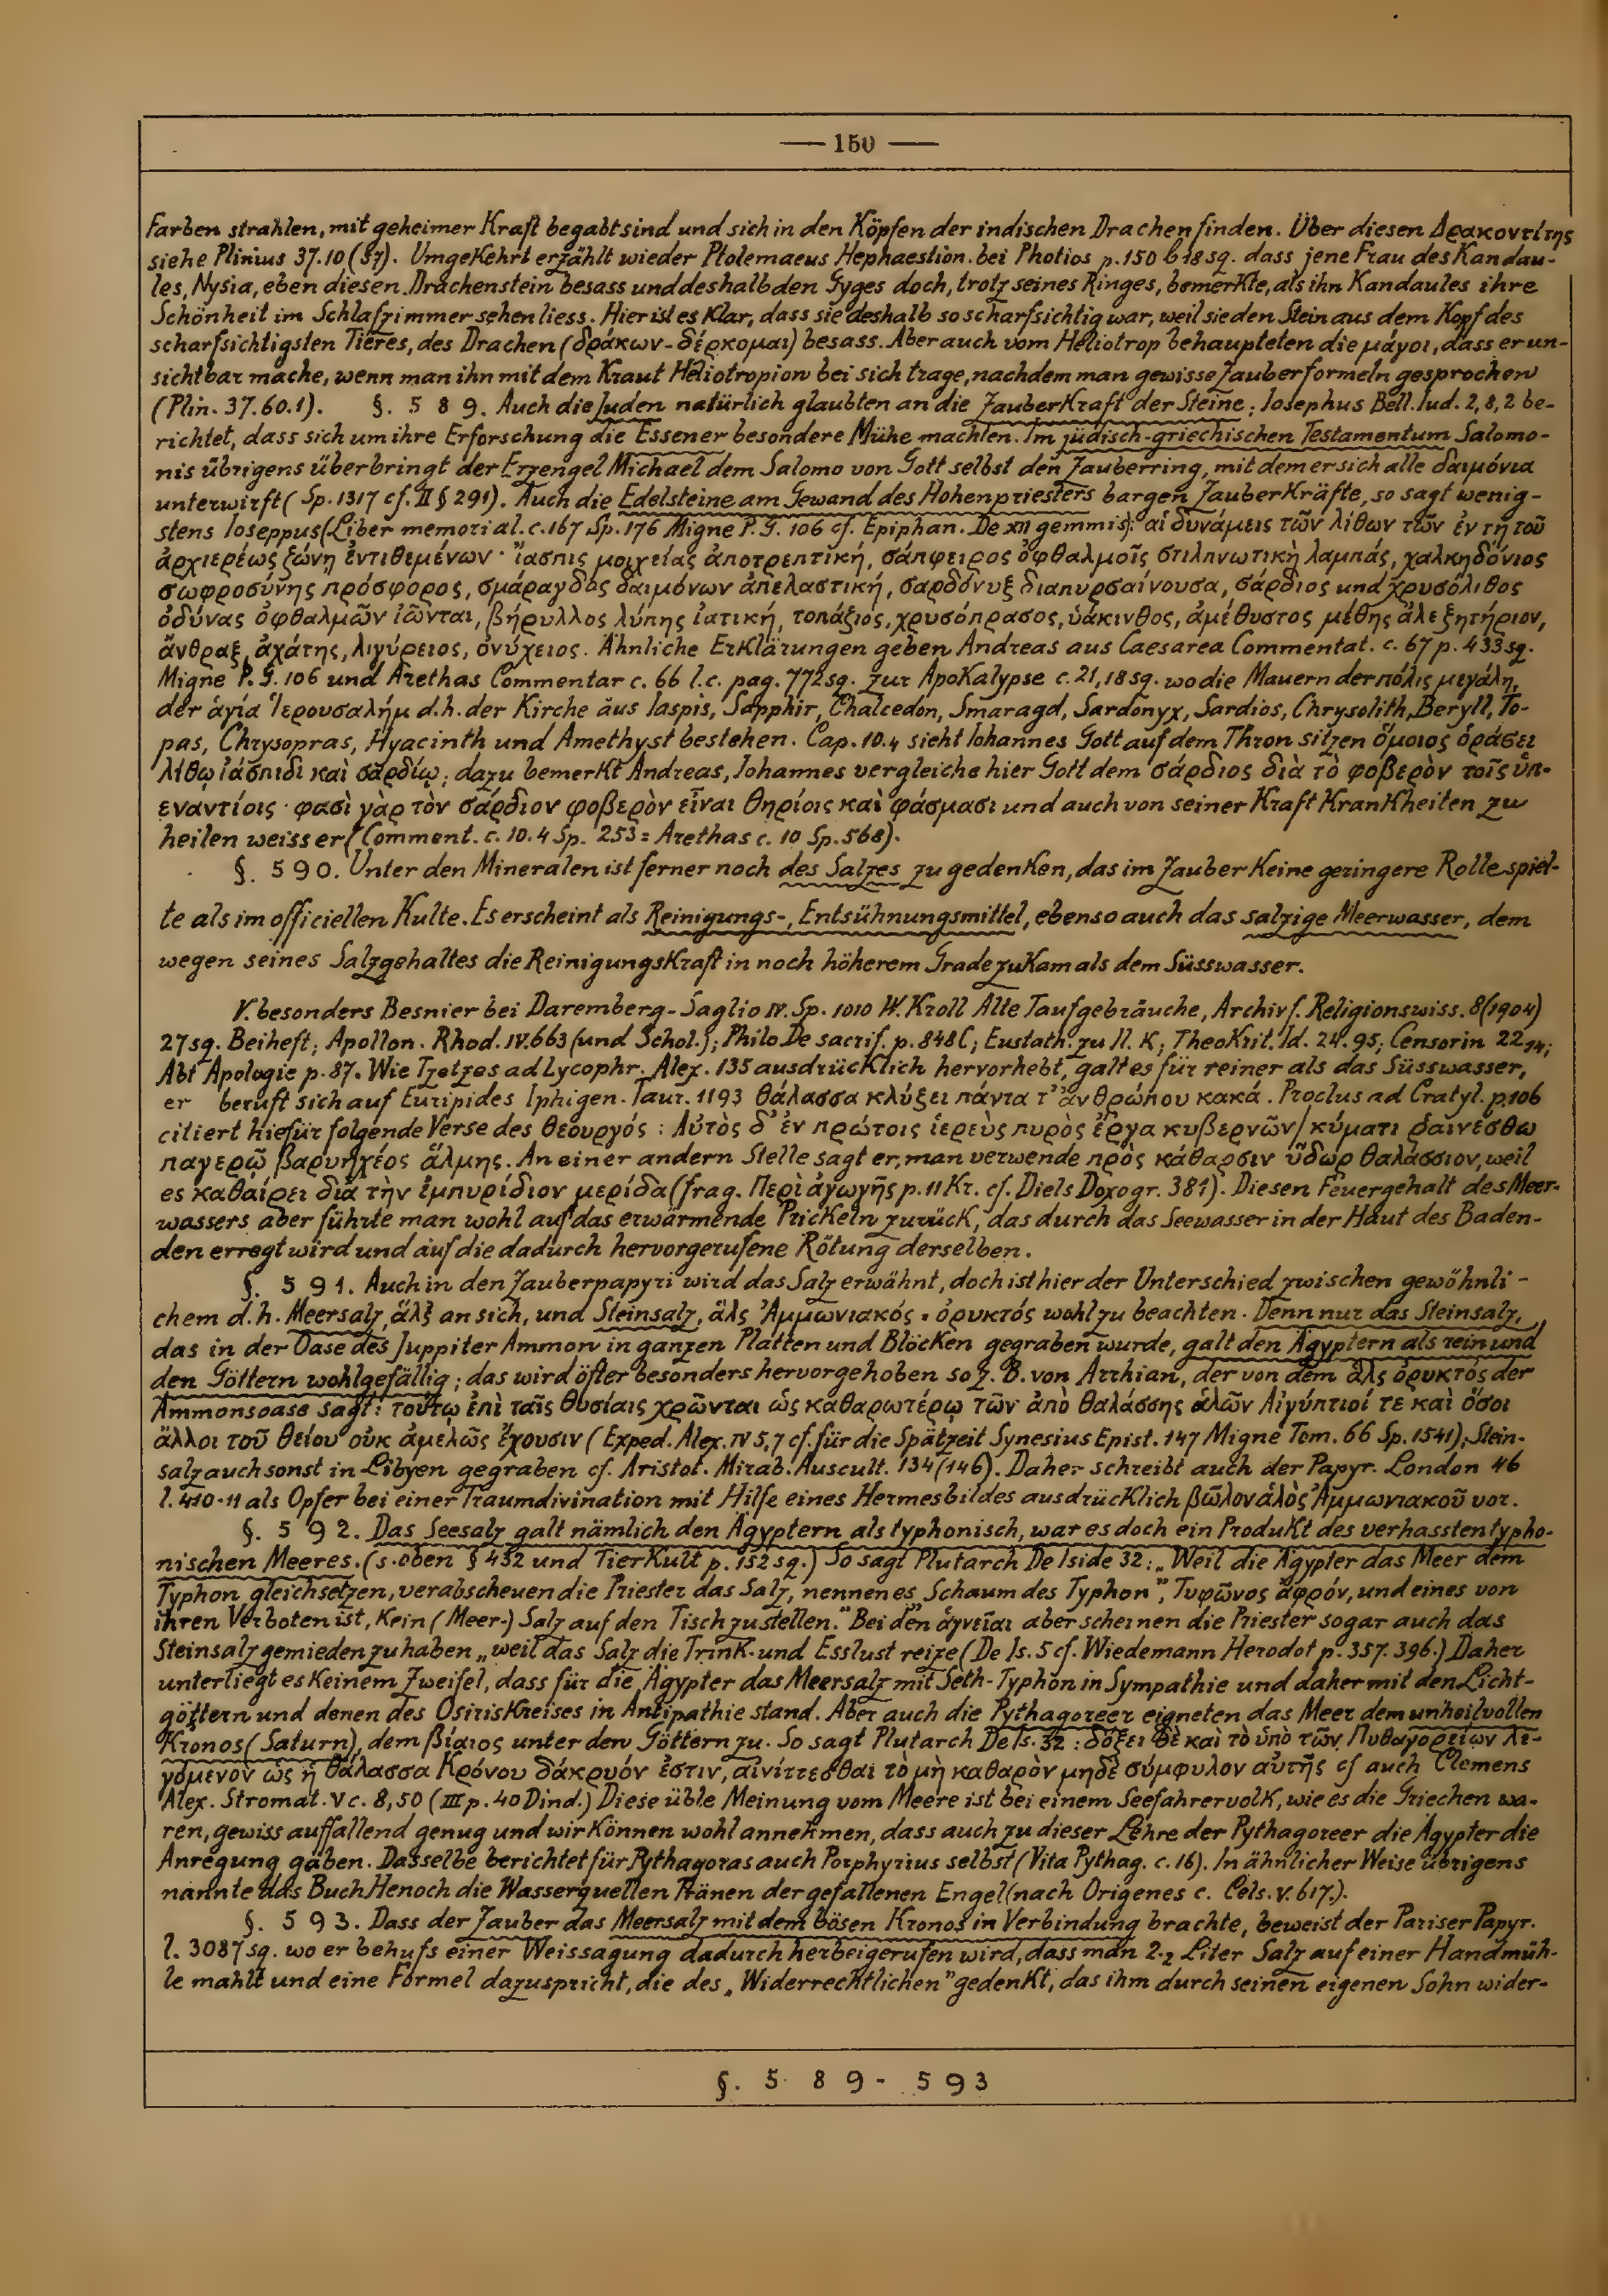 — 150 —
Farben strahlen, mit geheimer Kraft begabt sind und sich in den Köpfen der indischen Drachen finden. Über diesen Δρακοντίτης
siehe Plinius 37.10 (57). Umgekehrt erzählt wieder Ptolemaeus Hephaestion. bei Photios p. 150 b 18 sg. dass jene Frau des Kandau-
les, Nysia, eben diesen Drachenstein besass und deshalb den Gyges doch, trotz seines Ringes, bemerkte, als ihn Kandaules ihre
Schönheit im Schlafzimmer sehen liess. Hier ist es klar, dass sie deshalb so scharfsichtig war, weil sie den Stein aus dem Kopf des
scharfsichtigsten Tieres, des Drachen (δράκων - δέρκομαι) besass. Aber auch vom Heliotrop behaupteten die μάγοι, dass er un-
sichtbar mache, wenn man ihn mit dem Kraut Heliotropion bei sich trage, nachdem man gewisse Zauberformeln gesprochen
(Plin. 37.60.1). §. 589. Auch die Juden natürlich glaubten an die Zauberkraft der Steine; Iosephus Bell. Iud. 2, 8, 2 be-
richtet, dass sich um ihre Erforschung die Essener besondere Mühe machten. Im jüdisch-griechischen Testamentum Salomo-
nis übrigens überbringt der Erzengel Michael dem Salomo von Gott selbst den Zauberring, mit dem er sich alle δαιμόνια
unterwirft (Sp. 1317 cf. II § 291). Auch die Edelsteine am Gewand des Hohenpriesters bargen Zauberkräfte, so sagt wenig-
stens Ioseppus (Liber memorial. c. 167 Sp. 176 Migne P. G. 106 cf. Epiphan. De XII gemmis): αἱ δυνάμεις τῶν λίθων τῶν ἐν τῇ τοῦ
ἀρχιερέως ζώνῃ ἐντιθεμένων · ἴασπις μοιχείας ἀποτρεπτική, σάπφειρος ὀφθαλμοῖς στιλπνωτικὴ λαμπάς, χαλκηδόνιος
σωφροσύνης πρόσφορος, σμάραγδος δαιμόνων ἀπελαστική, σαρδόνυξ διαπυρσαίνουσα, σάρδιος und χρυσόλιθος
ὀδύνας ὀφθαλμῶν ἰῶνται, βήρυλλος λύπης ἰατική, τοπάζιος, χρυσόπρασος, ὑάκινθος, ἀμέθυστος μέθης ἀλεξητήριον,
ἄνθραξ, ἀχάτης, λιγύρειος, ὀνύχειος. Ähnliche Erklärungen geben Andreas aus Caesarea Commentat. c. 67 p. 433 sg.
Migne P. G. 106 und Arethas Commentar c. 66 l. c. pag. 772 sg. zur Apokalypse c. 21, 18 sg. wo die Mauern der πόλις μεγάλη,
der ἁγία Ἱερουσαλήμ d. h. der Kirche aus Iaspis, Sapphir, Chalcedon, Smaragd, Sardonyx, Sardios, Chrysolith, Beryll, To-
pas, Chrysopras, Hyacinth und Amethyst bestehen. Cap. 10.4 sieht Iohannes Gott auf dem Thron sitzen ὅμοιος ὁράσει
λίθῳ ἰάσπιδι καὶ σαρδίῳ; dazu bemerkt Andreas, Iohannes vergleiche hier Gott dem σάρδιος διὰ τὸ φοβερὸν τοῖς ὑπ-
εναντίοις · φασὶ γὰρ τὸν σάρδιον φοβερὸν εἶναι θηρίοις καὶ φάσμασι und auch von seiner Kraft Krankheiten zu
heilen weiss er (Comment. c. 10. 4 Sp. 253 = Arethas c. 10 Sp. 568).
§. 590. Unter den Mineralen ist ferner noch des Salzes zu gedenken, das im Zauber keine geringere Rolle spiel-
te als im officiellen Kulte. Es erscheint als Reinigungs-, Entsühnungsmittel, ebenso auch das salzige Meerwasser, dem
wegen seines Salzgehaltes die Reinigungskraft in noch höherem Grade zukam als dem Süsswasser.
V. besonders Besnier bei Daremberg-Saglio IV. Sp. 1010 W. Kroll Alte Taufgebräuche, Archiv f. Religionswiss. 8 (1904)
27 sg. Beiheft; Apollon. Rhod. IV. 663 (und Schol.); Philo De sacrif. p. 848 C; Eustath. zu Il. K; Theokrit. Id. 24. 95; Censorin 22,14;
Abt Apologie p. 87. Wie Tzetzes ad Lycophr. Alex. 135 ausdrücklich hervorhebt, galt es für reiner als das Süsswasser,
er beruft sich auf Euripides Iphigen. Taur. 1193 θάλασσα κλύζει πάντα τ' ἀνθρώπου κακά. Proclus ad Cratyl. p. 106
citiert hiefür folgende Verse des Θεουργός: Αὐτὸς δ' ἐν πρώτοις ἱερεὺς πυρὸς ἔργα κυβερνῶν / κύματι ῥαινέσθω
παγερῷ βαρυηχέος ἅλμης. An einer andern Stelle sagt er, man verwende πρὸς κάθαρσιν ὕδωρ θαλάσσιον, weil
es καθαίρει διὰ τὴν ἐμπυρίδιον μερίδα (frag. Περὶ ἀγωγῆς p. 11 Kr. cf. Diels Doxogr. 381). Diesen Feuergehalt des Meer-
wassers aber führte man wohl auf das erwärmende Prickeln zurück, das durch das Seewasser in der Haut des Baden-
den erregt wird und auf die dadurch hervorgerufene Rötung derselben.
§. 591. Auch in den Zauberpapyri wird das Salz erwähnt, doch ist hier der Unterschied zwischen gewöhnli-
chem d. h. Meersalz, ἅλς an sich, und Steinsalz, ἅλς Ἀμμωνιακός = ὀρυκτός wohl zu beachten. Denn nur das Steinsalz,
das in der Oase des Juppiter Ammon in ganzen Platten und Blöcken gegraben wurde, galt den Ägyptern als rein und
den Göttern wohlgefällig; das wird öfter besonders hervorgehoben so z. B. von Arrhian, der von dem ἅλς ὀρυκτός der
Ammonsoase sagt: τούτῳ ἐπὶ ταῖς θυσίαις χρῶνται ὡς καθαρωτέρῳ τῶν ἀπὸ θαλάσσης ἁλῶν Αἰγύπτιοί τε καὶ ὅσοι
ἄλλοι τοῦ θείου οὐκ ἀμελῶς ἔχουσιν (Exped. Alex. IV 5,7 cf. für die Spätzeit Synesius Epist. 147 Migne Tom. 66 Sp. 1541); Stein-
salz auch sonst in Libyen gegraben cf. Aristot. Mirab. Auscult. 134 (146). Daher schreibt auch der Papyr. London 46
l. 410-11 als Opfer bei einer Traumdivination mit Hilfe eines Hermesbildes ausdrücklich βῶλον ἁλὸς Ἀμμωνιακοῦ vor.
§. 592. Das Seesalz galt nämlich den Ägyptern als typhonisch, war es doch ein Produkt des verhassten typho-
nischen Meeres. (s. oben § 432 und Tierkult p. 152 sg.) So sagt Plutarch De Iside 32: „Weil die Ägypter das Meer dem
Typhon gleichsetzen, verabscheuen die Priester das Salz, nennen es „Schaum des Typhon", Τυφῶνος ἀφρόν, und eines von
ihren Verboten ist, kein (Meer-) Salz auf den Tisch zu stellen." Bei den ἁγνεῖαι aber scheinen die Priester sogar auch das
Steinsalz gemieden zu haben „weil das Salz die Trink- und Esslust reize (De Is. 5 cf. Wiedemann Herodot p. 357. 396.) Daher
unterliegt es keinem Zweifel, dass für die Ägypter das Meersalz mit Seth-Typhon in Sympathie und daher mit den Licht-
göttern und denen des Osiriskreises in Antipathie stand. Aber auch die Pythagoreer eigneten das Meer dem unheilvollen
Kronos (Saturn), dem βίαιος unter den Göttern zu. So sagt Plutarch De Is. 32: δόξει δὲ καὶ τὸ ὑπὸ τῶν Πυθαγορείων λε-
γόμενον ὡς ἡ θάλασσα Κρόνου δάκρυόν ἐστιν, αἰνίττεσθαι τὸ μὴ καθαρὸν μηδὲ σύμφυλον αὐτῆς cf auch Clemens
Alex. Stromat. V c. 8, 50 (III p. 40 Dind.) Diese üble Meinung vom Meere ist bei einem Seefahrervolk, wie es die Griechen wa-
ren, gewiss auffallend genug und wir können wohl annehmen, dass auch zu dieser Lehre der Pythagoreer die Ägypter die
Anregung gaben. Dasselbe berichtet für Pythagoras auch Porphyrius selbst (Vita Pythag. c. 16). In ähnlicher Weise übrigens
nannte das Buch Henoch die Wasserquellen Tränen der gefallenen Engel (nach Origenes c. Cels. V. 617.).
§. 593. Dass der Zauber das Meersalz mit dem bösen Kronos in Verbindung brachte, beweist der Pariser Papyr.
l. 3087 sg. wo er behufs einer Weissagung dadurch herbeigerufen wird, dass man 2·2 Liter Salz auf einer Handmüh-
le mahlt und eine Formel dazuspricht, die des „Widerrechtlichen" gedenkt, das ihm durch seinen eigenen Sohn wider-
§. 589 - 593